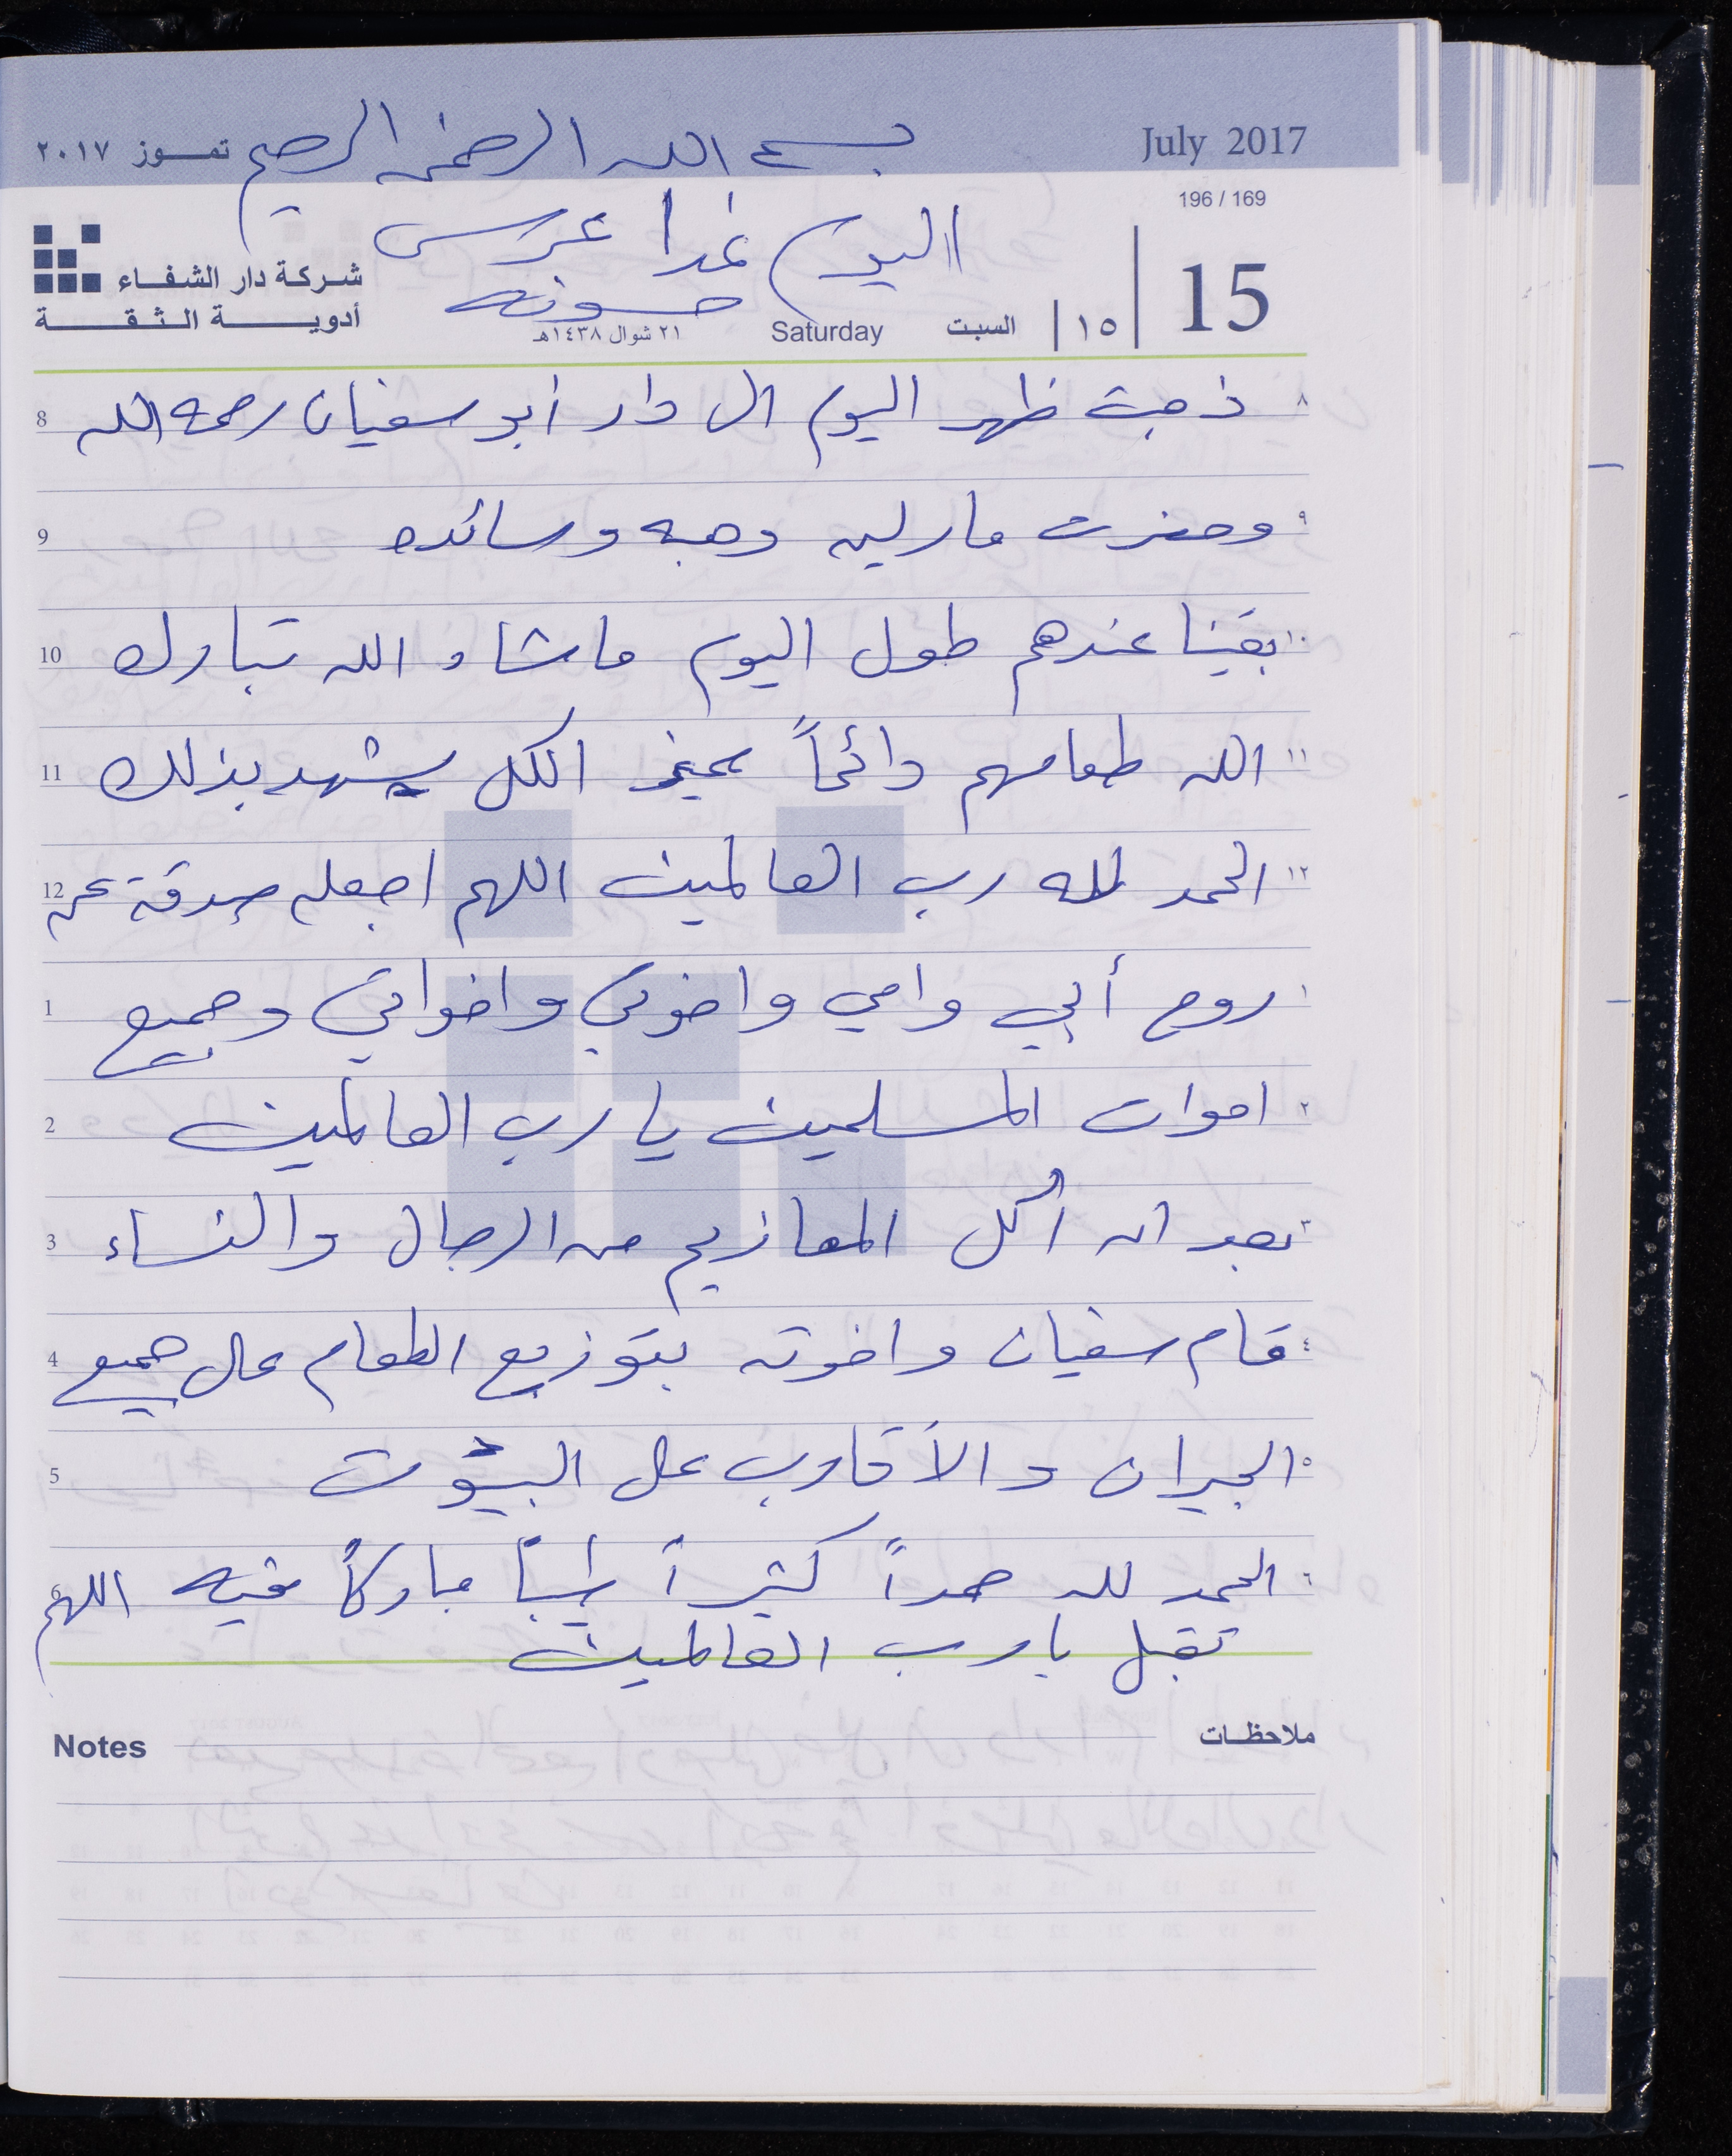 July 2017
بسم الله الرحمن الرحيم
تمـــوز ٢٠١٧
196 / 169
اليوم غدا عرس
حسونه
شركة دار الشفاء
أدوية الثقة
15
١٥
السبت
Saturday
٢١ شوال ١٤٣٨هـ
٨ ذهبت ظهر اليوم الى دار أبو سفيان رحمه الله 8
٩ وحضرت مارلين وهبه وسائده 9
١٠ بقينا عندهم طول اليوم ماشاء الله تبارك 10
١١ الله طعامهم دائماً الكل يشهد بذلك 11
١٢ الحمد لله رب العالمين اللهم اجعله صدقة عن 12
١ روح أبي وامي واخوتي واخواتي وجميع 1
٢ اموات المسلمين يا رب العالمين 2
٣ بعد ان اكل المعازيم من الرجال والنساء 3
٤ قام سفيان واخوته بتوزيع الطعام على جميع 4
٥ الجيران والأقارب على البيوت 5
٦ الحمد لله حمداً كثيراً طيباً مباركاً فيه اللهم 6
تقبل يارب العالمين
Notes
ملاحظات